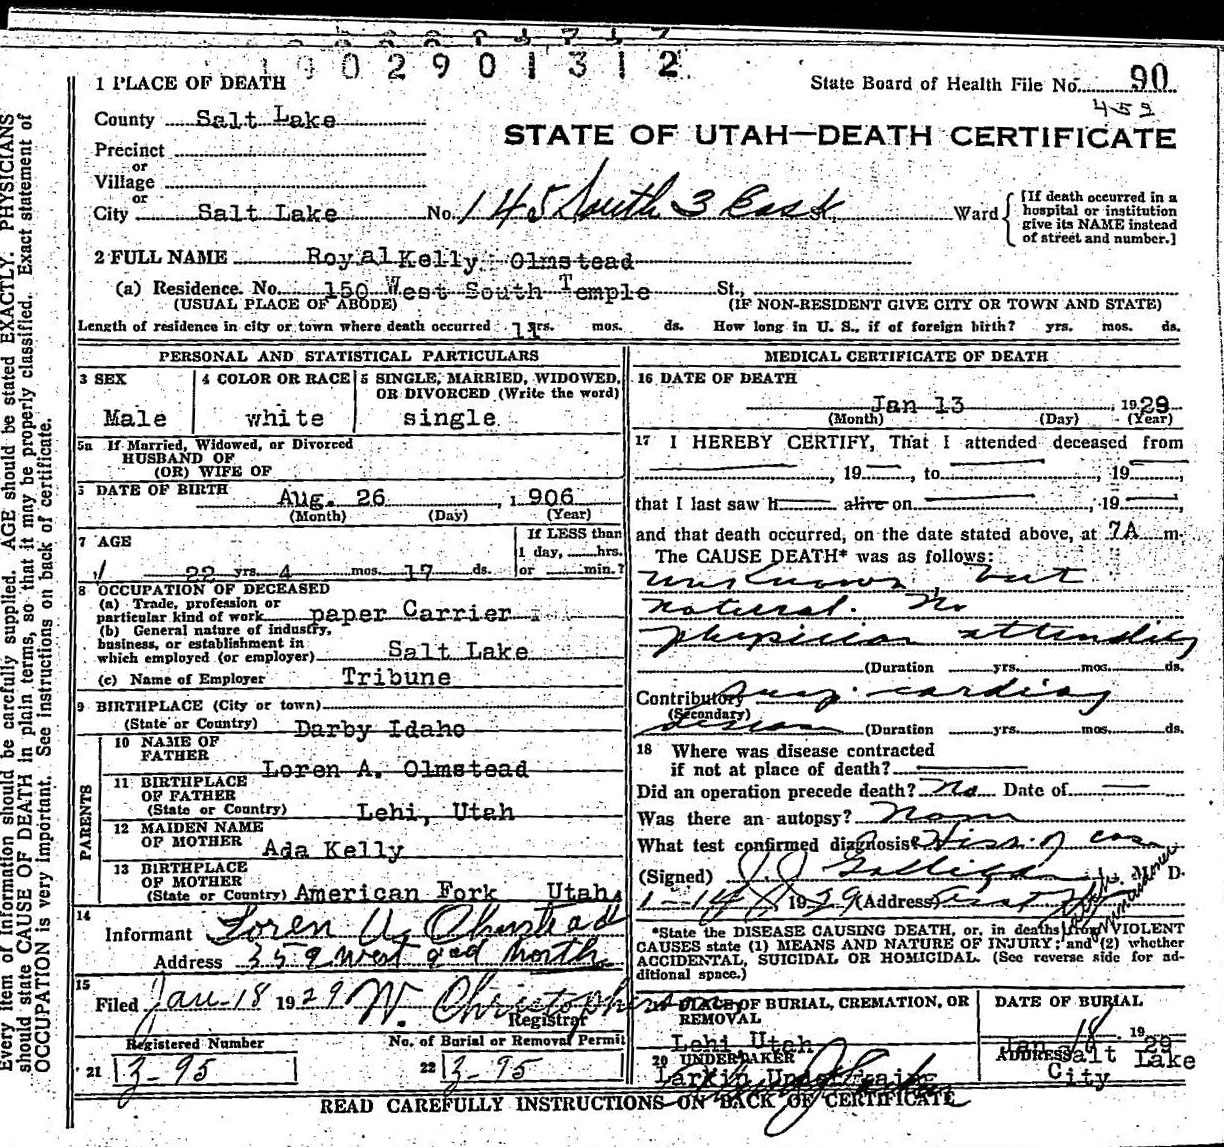 1902901312
1 PLACE OF DEATH
State Board of Health File No. 90
452
County Salt Lake
STATE OF UTAH—DEATH CERTIFICATE
Precinct
or
Village
or
City Salt Lake No. 145 South 3 East Ward
[If death occurred in a hospital or institution give its NAME instead of street and number.]
2 FULL NAME Royal Kelly Olmstead
(a) Residence. No. 150 West South Temple St.,
(USUAL PLACE OF ABODE) (IF NON-RESIDENT GIVE CITY OR TOWN AND STATE)
Length of residence in city or town where death occurred 11 yrs. mos. ds. How long in U. S., if of foreign birth? yrs. mos. ds.
PERSONAL AND STATISTICAL PARTICULARS
3 SEX
Male
4 COLOR OR RACE
white
5 SINGLE, MARRIED, WIDOWED,
OR DIVORCED (Write the word)
single
5a If Married, Widowed, or Divorced
HUSBAND OF
(OR) WIFE OF
DATE OF BIRTH
Aug. 26, 1906
(Month) (Day) (Year)
7 AGE
22 yrs. 4 mos. 17 ds.
If LESS than
1 day, hrs.
or min.?
8 OCCUPATION OF DECEASED
(a) Trade, profession or
particular kind of work paper Carrier
(b) General nature of industry,
business, or establishment in
which employed (or employer) Salt Lake
(c) Name of Employer Tribune
9 BIRTHPLACE (City or town)
(State or Country) Darby Idaho
PARENTS
10 NAME OF
FATHER
Loren A. Olmstead
11 BIRTHPLACE
OF FATHER
(State or Country) Lehi, Utah
12 MAIDEN NAME
OF MOTHER
Ada Kelly
13 BIRTHPLACE
OF MOTHER
(State or Country) American Fork Utah.
14
Informant Loren A. Olmstead
Address 359 West 2nd North
15
Filed Jan-18 1929 W. Christopherson
Registrar
Registered Number No. of Burial or Removal Permit
21 Z-95 22 Z-95
MEDICAL CERTIFICATE OF DEATH
16 DATE OF DEATH
Jan 13, 1929
(Month) (Day) (Year)
17 I HEREBY CERTIFY, That I attended deceased from
, 19 , to , 19 ,
that I last saw h alive on , 19 ,
and that death occurred, on the date stated above, at 7A m.
The CAUSE DEATH* was as follows:
unknown but
natural. No
physician attending
(Duration yrs. mos. ds.
Contributory Susp. cardiac
(Secondary)
disease (Duration yrs. mos. ds.
18 Where was disease contracted
if not at place of death?
Did an operation precede death? No Date of
Was there an autopsy? None
What test confirmed diagnosis? History of case
(Signed) J. J. Galligan M. D.
1-14 1929 (Address)
*State the DISEASE CAUSING DEATH, or, in deaths from VIOLENT
CAUSES state (1) MEANS AND NATURE OF INJURY; and (2) whether
ACCIDENTAL, SUICIDAL OR HOMICIDAL. (See reverse side for ad-
ditional space.)
19 PLACE OF BURIAL, CREMATION, OR
REMOVAL
Lehi Utah
DATE OF BURIAL
Jan 18 1929
20 UNDERTAKER
Larkin Undertaking
ADDRESS Salt Lake
City
READ CAREFULLY INSTRUCTIONS ON BACK OF CERTIFICATE
Every item of information should be carefully supplied. AGE should be stated EXACTLY. PHYSICIANS
should state CAUSE OF DEATH in plain terms, so that it may be properly classified. Exact statement of
OCCUPATION is very important. See instructions on back of certificate.